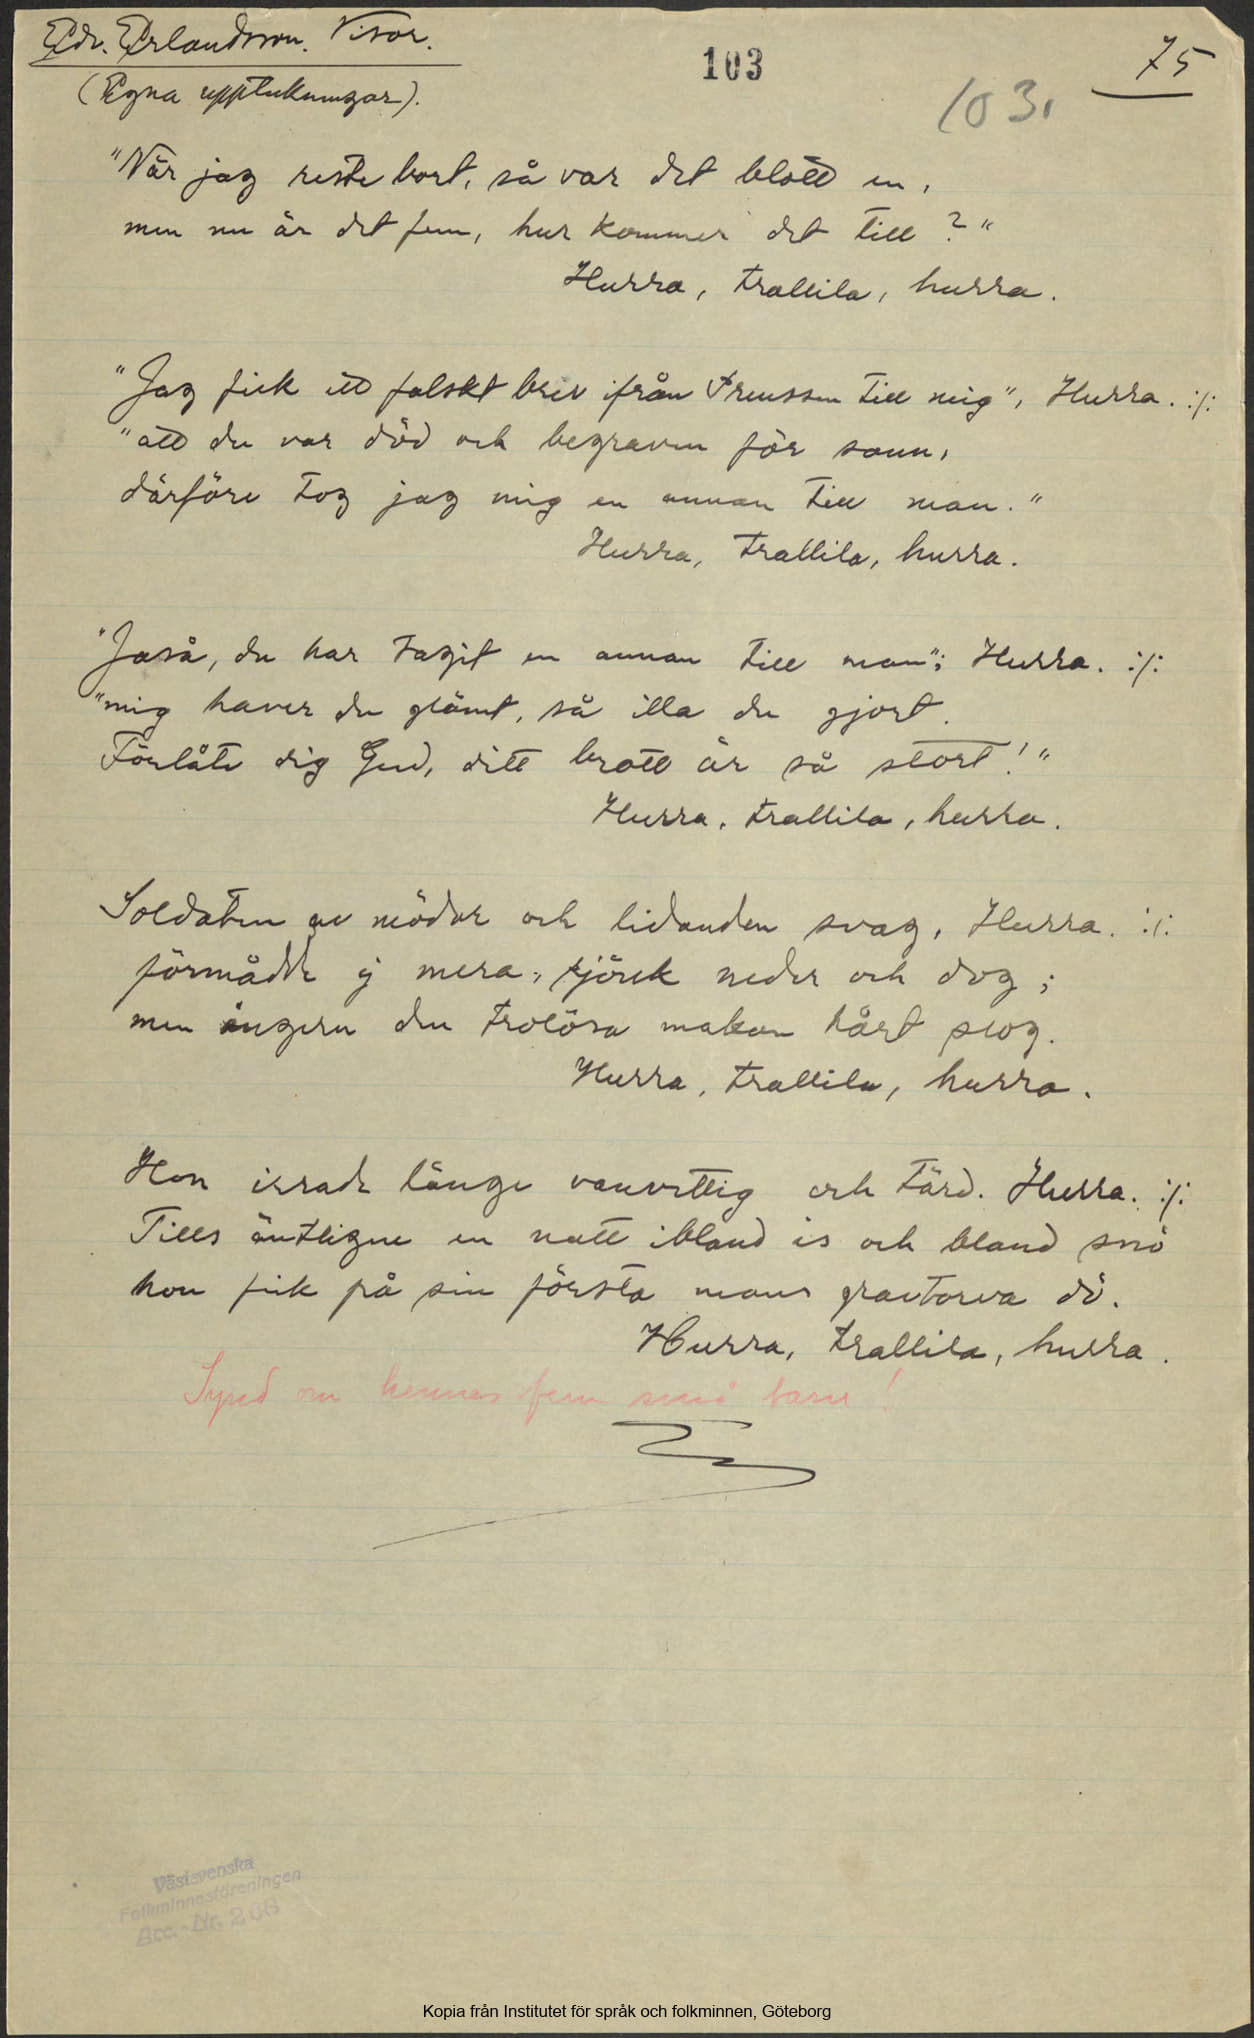 Edv. Erlandsson. Visor.
103
75
(Egna uppteckningar).
103.
"När jag reste bort, så var det blott en,
men nu är det fem, hur kommer det till?"
Hurra, trallila, hurra.
"Jag fick ett falskt brev ifrån Preussen till mig", Hurra. :/:
"att du var död och begraven för sann,
därföre tog jag mig en annan till man."
Hurra, trallila, hurra.
"Jaså, du har tagit en annan till man"; Hurra. :/:
"mig haver du glömt, så illa du gjort.
Förlåte dig Gud, ditt brott är så stort!"
Hurra, trallila, hurra.
Soldaten av mödor och lidanden svag, Hurra. :/:
förmådde ej mera, sjönk neder och dog;
men ångern den trolösa makan hårt slog.
Hurra, trallila, hurra.
Hon irrade länge vanvettig och tärd. Hurra. :/:
Tills äntligen en natt ibland is och bland snö
hon fick på sin första mans gravtorva dö.
Hurra, trallila, hurra.
Synd om hennes fem små barn!
Västsvenska
Folkminnesföreningen
Acc.-Nr. 206
Kopia från Institutet för språk och folkminnen, Göteborg